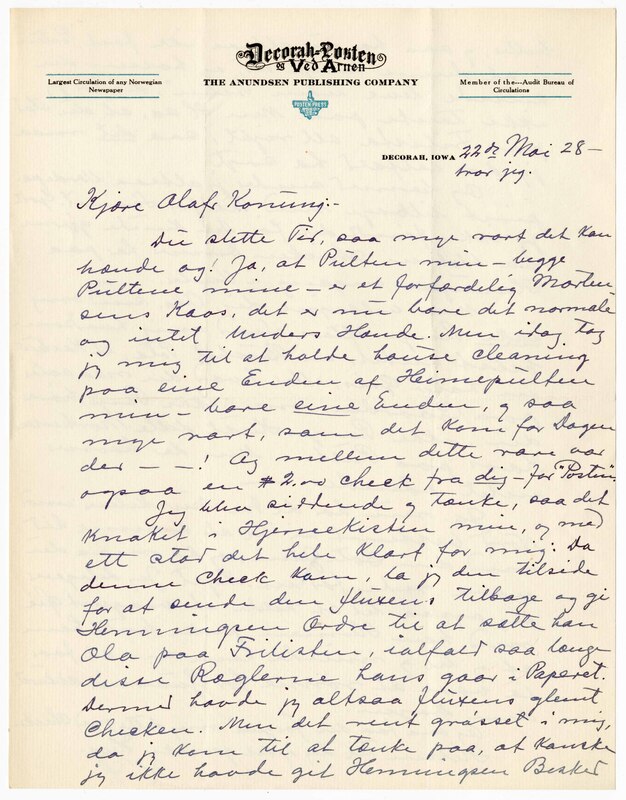 Decorah-Posten
og Ved Arnen
Largest Circulation of any Norwegian
Newspaper
THE ANUNDSEN PUBLISHING COMPANY
Member of the---Audit Bureau of
Circulations
POSTEN PRESS
DECORAH, IOWA 22de Mai 28 –
tror jeg.
Kjære Olafr Konung:-
Du slette Tid, saa mye rart det kan
hænde og! Ja, at Pulten min – begge
Pultene mine – er et forfærdelig Morten-
sens Kaos, det er nu bare det normale
og intet Unders Hænde. Men idag tog
jeg mig til at holde house cleaning
paa eine Enden af Heimepulten
min – bare eine Enden, og saa
mye rart, som det kom for Dagen
der – – –! Og mellem dette rare var
ogsaa en $2.00 check fra dig – for "Posten".
Jeg blev siddende og tænke, saa det
knaket i Hjernekisten min, og med
ett stod det hele klart for mig: Da
denne Check kom, la jeg den tilside
for at sende den fluxens tilbage og gi
Henningsen Ordre til at sætte han
Ola paa Frilisten, ialfald saa længe
disse Ræglerne hans gaar i Paperet.
Dermed havde jeg altsaa fluxens glemt
Checken. Men det rent grøsset i mig,
da jeg kom til at tænke paa, at kanske
jeg ikke havde git Henningsen Besked